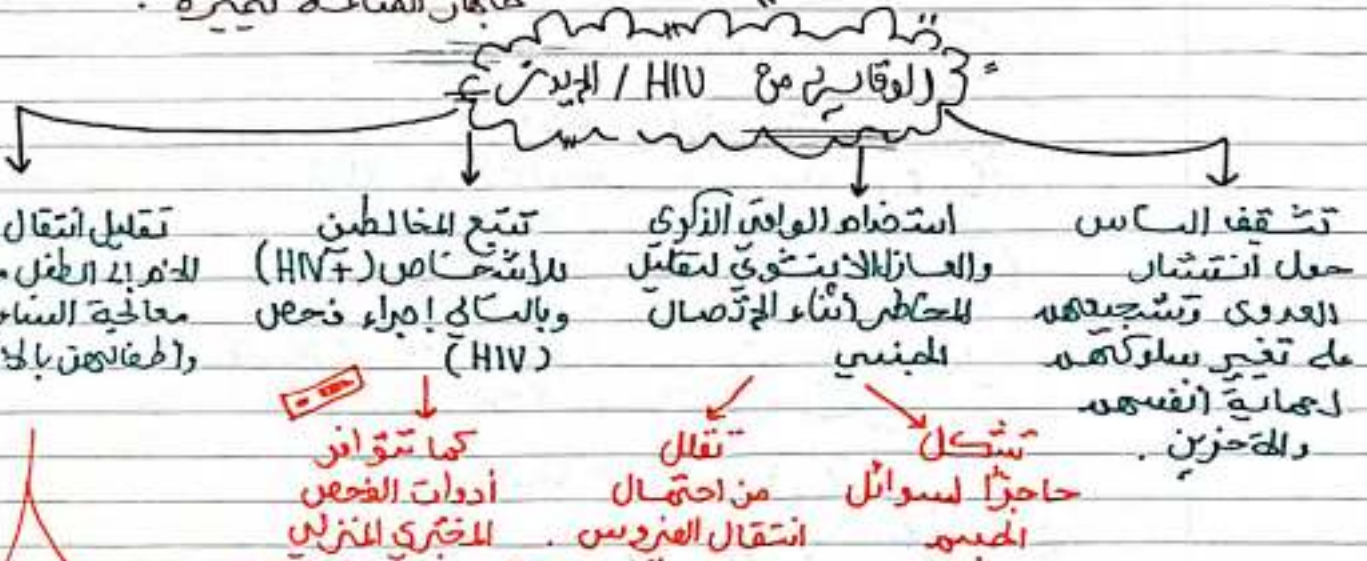 المناعة
الوقاية من HIV / الإيدز
تثقف الناس
حول انتشار
العدوى وتشجيعهم
على تغير سلوكهم
لحماية أنفسهم
والآخرين .
استخدام الواقي الذكري
والعازل الأنثوي لتقليل
المخاطر أثناء الإتصال
الجنسي
تشكل
حاجزًا لسوائل
الجسم
تقلل
من احتمال
انتقال الفيروس .
تتبع المخالطين
للأشخاص (HIV+)
وبالتالي إجراء فحص
(HIV)
كما تتوافر
أدوات الفحص
المختبري المنزلي
تقليل انتقال
الأم إلى الطفل
معالجة النساء
وأطفالهن